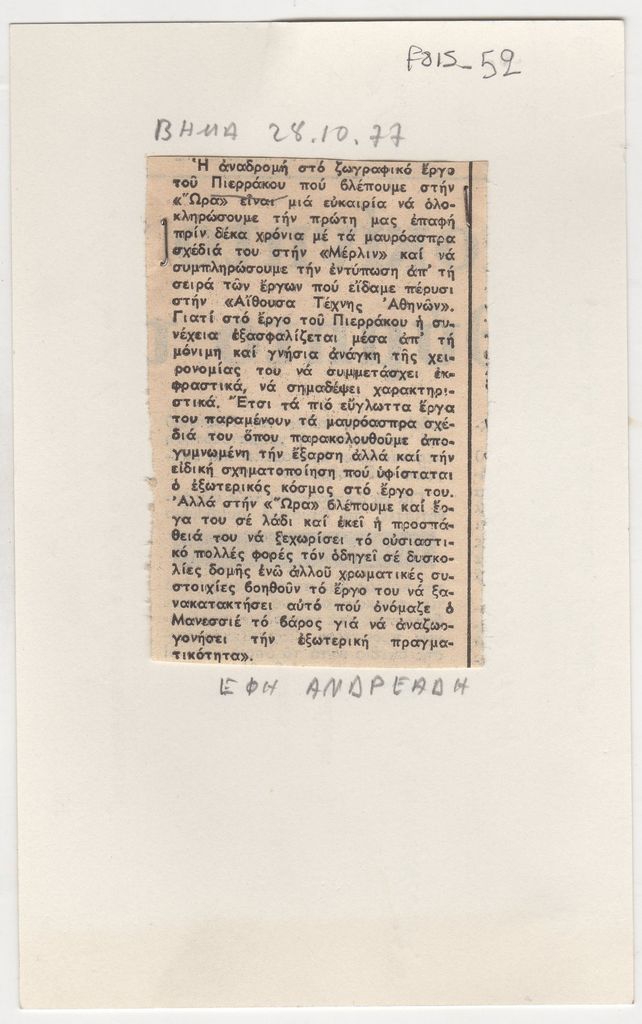 F015_52
ΒΗΜΑ 28.10.77
Ἡ ἀναδρομή στό ζωγραφικό ἔργο
τοῦ Πιερράκου πού βλέπουμε στήν
«Ὥρα» εἶναι μιά εὐκαιρία νά ὁλο-
κληρώσουμε τήν πρώτη μας ἐπαφή
πρίν δέκα χρόνια μέ τά μαυρόασπρα
σχέδιά του στήν «Μέρλιν» καί νά
συμπληρώσουμε τήν ἐντύπωση ἀπ' τή
σειρά τῶν ἔργων πού εἴδαμε πέρυσι
στήν «Αἴθουσα Τέχνης Ἀθηνῶν».
Γιατί στό ἔργο τοῦ Πιερράκου ἡ συ-
νέχεια ἐξασφαλίζεται μέσα ἀπ' τή
μόνιμη καί γνήσια ἀνάγκη τῆς χει-
ρονομίας του νά συμμετάσχει ἐκ-
φραστικά, νά σημαδέψει χαρακτηρι-
στικά. Ἔτσι τά πιό εὔγλωττα ἔργα
του παραμένουν τά μαυρόασπρα σχέ-
διά του ὅπου παρακολουθοῦμε ἀπο-
γυμνωμένη τήν ἔξαρση ἀλλά καί τήν
εἰδική σχηματοποίηση πού ὑφίσταται
ὁ ἐξωτερικός κόσμος στό ἔργο του.
Ἀλλά στήν «Ὥρα» βλέπουμε καί ἔρ-
γα του σέ λάδι καί ἐκεῖ ἡ προσπά-
θειά του νά ξεχωρίσει τό οὐσιαστι-
κό πολλές φορές τόν ὁδηγεῖ σέ δυσκο-
λίες δομῆς ἐνῶ ἀλλοῦ χρωματικές συ-
στοιχίες βοηθοῦν τό ἔργο του νά ξα-
νακατακτήσει αὐτό πού ὀνόμαζε ὁ
Μανεσσιέ τό βάρος γιά νά ἀναζωο-
γονήσει τήν ἐξωτερική πραγμα-
τικότητα».
ΕΦΗ ΑΝΔΡΕΑΔΗ